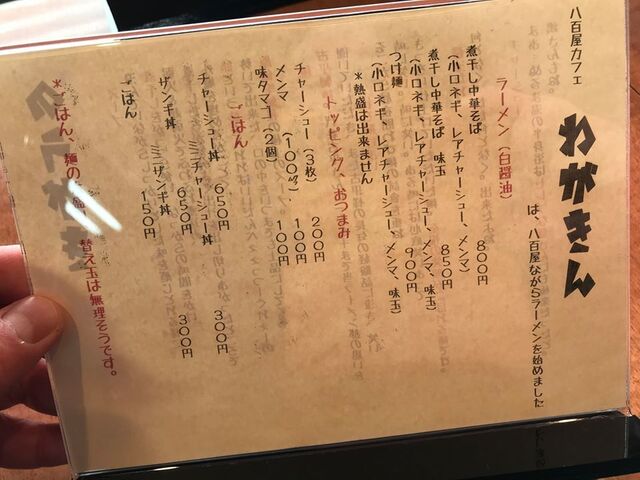 八百屋カフェ
わがきん
は、八百屋ながらラーメンを始めました
ラーメン（白醤油）
煮干し中華そば　800円
（小口ネギ、レアチャーシュー、メンマ）
煮干し中華そば　味玉　850円
（小口ネギ、レアチャーシュー、メンマ、味玉）
つけ麺　900円
（小口ネギ、レアチャーシュー、メンマ、味玉）
＊熱盛は出来ません
トッピング、おつまみ
チャーシュー（3枚）　200円
メンマ　（100㌘）　100円
味タマゴ（2個）　100円
ごはん
チャーシュー丼　650円
ミニチャーシュー丼　300円
ザンギ丼　650円
ミニザンギ丼　300円
ごはん　150円
＊ごはん、麺の　替え玉は無理そうです。